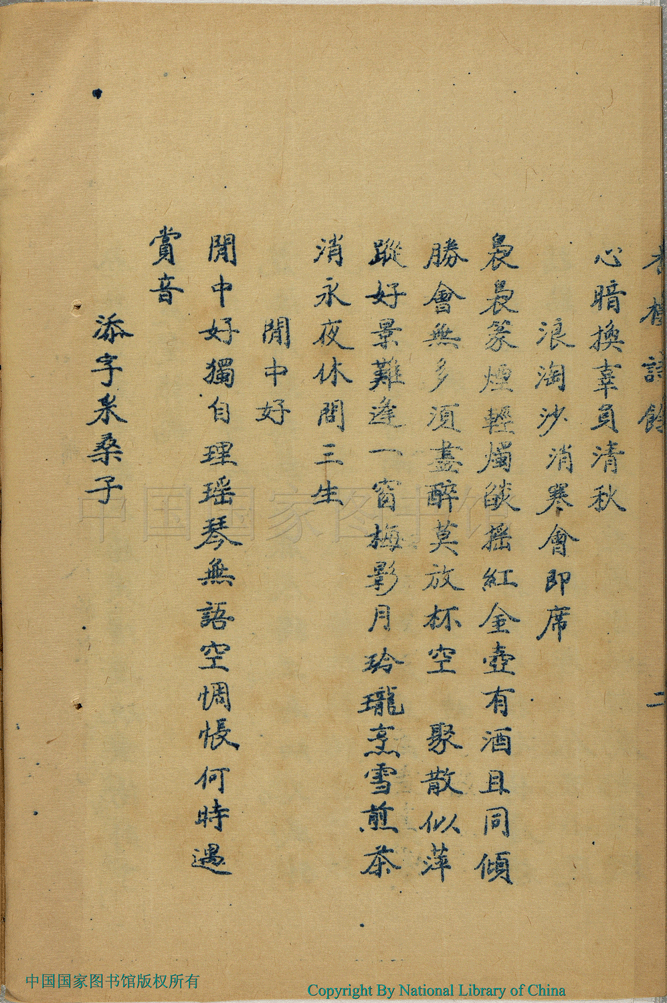 詩餘
二
心暗換辜負清秋
浪淘沙 消寒會即席
裊裊篆煙輕燭燄搖紅金壺有酒且同傾
勝會無多須盡醉莫放杯空 聚散似萍
蹤好景難逢一窗梅影月玲瓏烹雪煎茶
消永夜休問三生
閒中好
閒中好獨自理瑶琴無語空惆悵何時遇
賞音
添字采桑子
中国国家图书馆
中国国家图书馆版权所有
Copyright By National Library of China